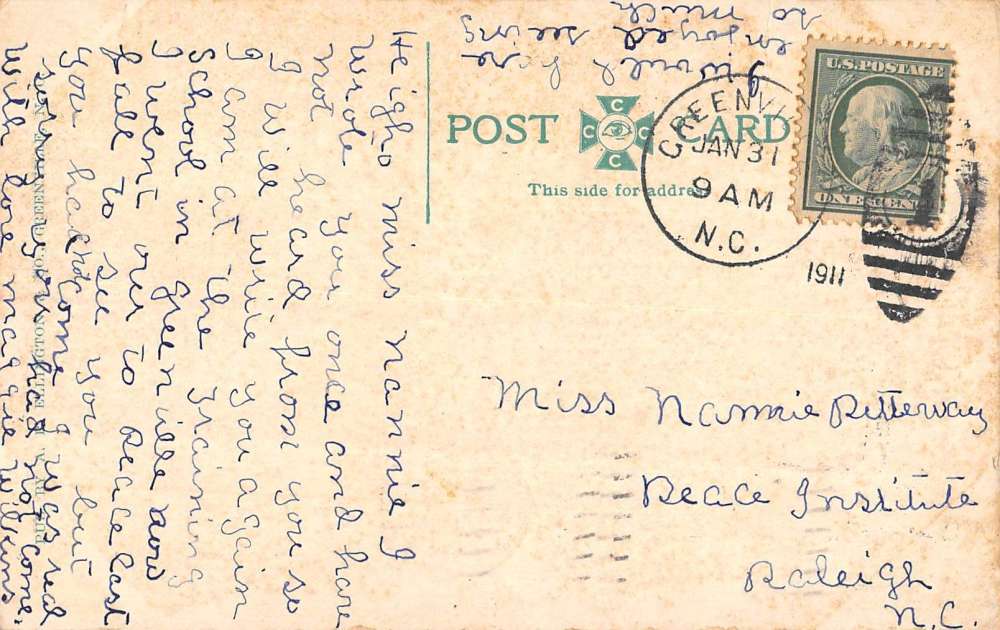 Heigho miss nannie I
wrote you once and have
not heard from you so
I will write you again
I am at the Training
School in Greenville now
I went over to Peace last
fall to see you but
you had not come I was real
sorry you had not come.
With love maggie Wilkins.
I would have
enjoyed seeing
so much
POST CARD
C C C C
This side for address
GREENVI
JAN 31
9 AM
N.C.
1911
U.S. POSTAGE
ONE CENT
Miss Nannie
Peace Institute
Raleigh
N.C.
ELLINGTON & CO., GREENVILLE, N.